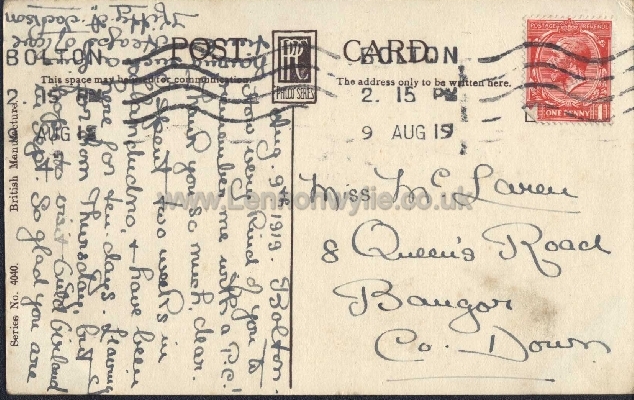 POST CARD.
PPC
PHILCO SERIES
This space may be used for communication.
The address only to be written here.
BOLTON
2. 15 PM
9 AUG 19
BOLTON
2 15 PM
AUG 19
POSTAGE REVENUE
ONE PENNY
Series No. 4040.
British Manufacture
Aug. 9th 1919. Bolton.
How very kind of you to
remember me with a P.C.
Thank you so much, dear.
spent two weeks in
& have been
here for ten days. Leaving
on Thursday, but
hope to visit
So glad you are
having
Kitty A. Jackson
Miss McLaren
8 Queen's Road
Bangor
Co. Down
www.Lennonwylie.co.uk